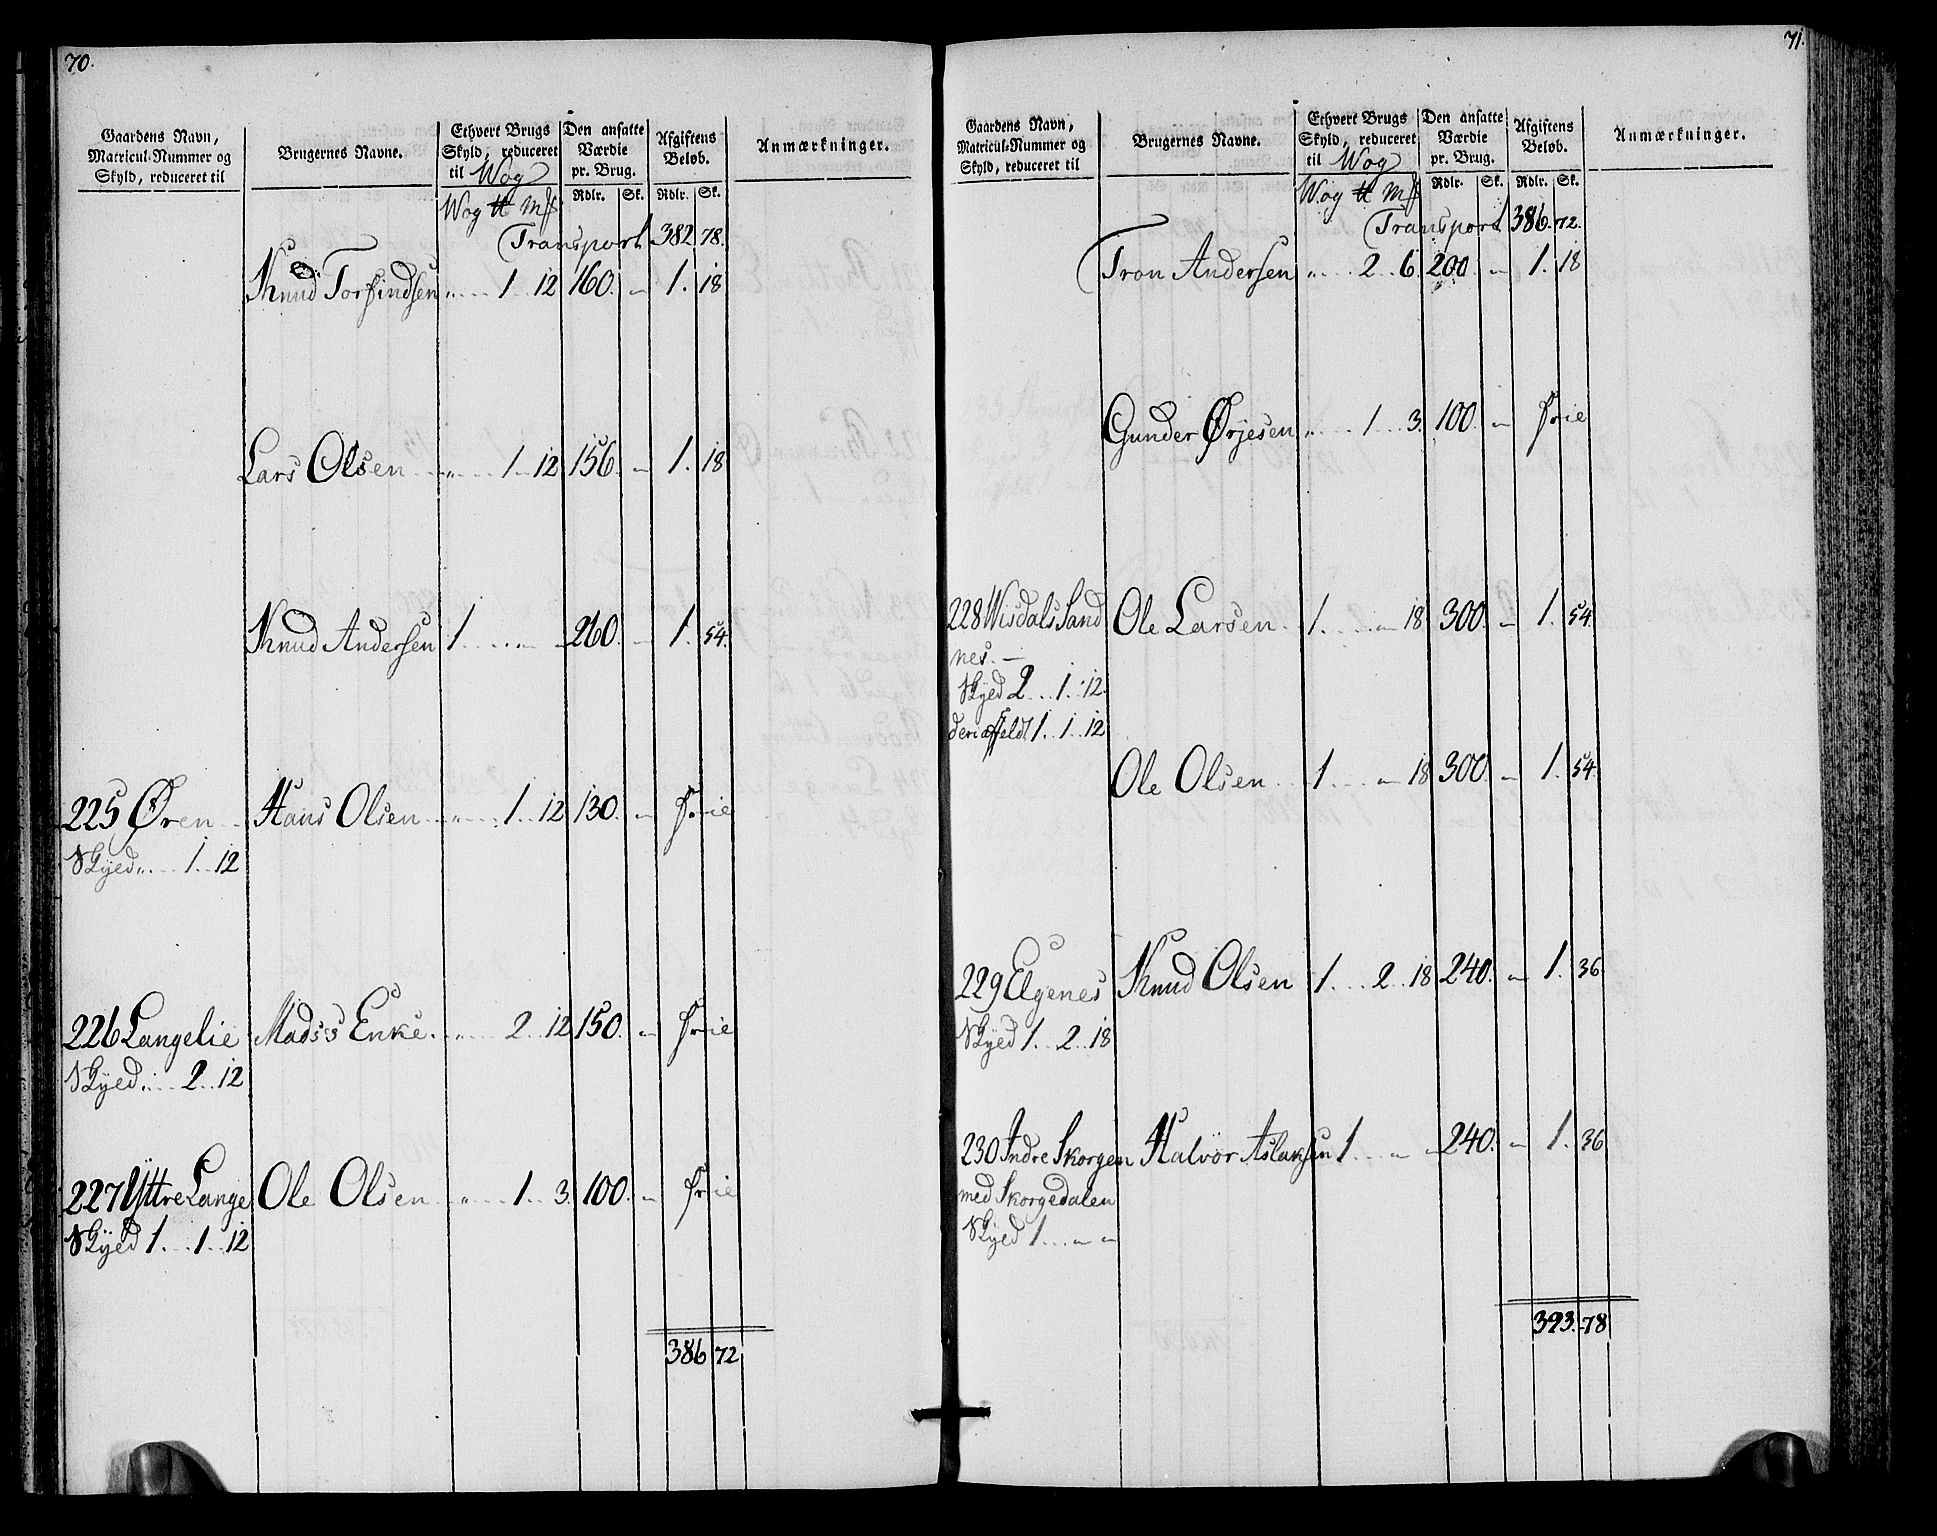 70.
Gaardens Navn, Matricul-Nummer og Skyld, reduceret til
Brugernes Navne.
Ethvert Brugs Skyld, reduceret til Wog
Den ansatte Værdie pr. Brug.
Afgiftens Beløb.
Anmærkninger.
Rdlr. Sk. Rdlr. Sk.
Wog ℔ Mk
Transport 382 78.
Knud Torfindsen " 1 12 160. " 1. 18
Lars Olsen " 1 12 156. " 1. 18
Knud Andersen 1 " " 260. " 1. 54.
225 Øren Hans Olsen " 1 12 130. " Frie
Skyed " 1 12
226 Langelie Madses Enke. " 2 12 150. " Frie
Skyed " 2 12
227 Yttre Lange Ole Olsen " 1 3. 100. " Frie
Skyed 1 1 12
386 72
71.
Gaardens Navn, Matricul-Nummer og Skyld, reduceret til
Brugernes Navne.
Ethvert Brugs Skyld, reduceret til Wog
Den ansatte Værdie pr. Brug.
Afgiftens Beløb.
Anmærkninger.
Rdlr. Sk. Rdlr. Sk.
Wog ℔ Mk
Transport 386. 72.
Tron Andersen " 2 6. 200. " 1. 18
Gunder Ørjesen " 1 3. 100. " Frie
228 Wisdals Sand Ole Larsen 1 " 18 300. " 1. 54.
nes. —
Skyed 2 1 12.
deri affeldt 1. 1 12
Ole Olsen 1 " 18 300. " 1. 54.
229 Elgenes Knud Olsen 1 2 18 240. " 1. 36
Skyed 1. 2 18
230 Indre Skorgen Halvor Aslaksen 1 " " 240. " 1. 36
med Skorgedalen
Skyed 1 " "
393. 78